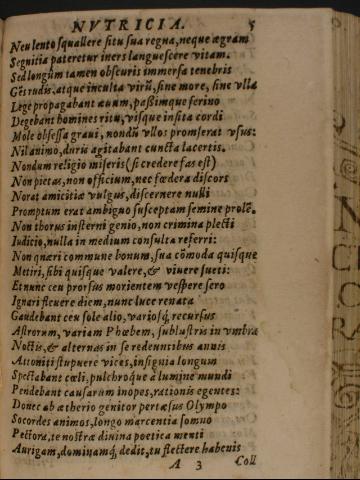 NVTRICIA. 5
Neu lento squallere situ sua regna, neque ægram
Segnitia pateretur iners languescere vitam.
Sed longùm tamen obscuris immersa tenebris
Gẽs rudis, atque inculta virũ, sine more, sine vlla
Lege propagabant æuum, paßimque ferino
Degebant homines ritu, visque insita cordi
Mole obsessa graui, nondũ vllos promserat vsus:
Nil animo, duris agitabant cuncta lacertis.
Nondum religio miseris (si credere fas est)
Non pietas, non officium, nec fœdera discors
Norat amicitiæ vulgus, discernere nulli
Promptum erat ambiguo susceptam semine prolẽ.
Non thorus insterni genio, non crimina plecti
Iudicio, nulla in medium consulta referri:
Non quæri commune bonum, sua cõmoda quisque
Metiri, sibi quisque valere, & viuere sueti:
Et nunc ceu prorsus morientem vespere sero
Ignari fleuere diem, nunc luce renata
Gaudebant ceu sole alio, variosq́; recursus
Astrorum, variam Phœbem, sublustris in vmbra
Noctis, & alternas in se redeuntibus annis
Attoniti stupuere vices, insignia longum
Spectabant cœli, pulchroque à lumine mundi
Pendebant causarum inopes, rationis egentes:
Donec ab ætherio genitor pertæsus Olympo
Socordes animos, longo marcentia somno
Pectora, te nostræ diuina poetica menti
Aurigam, dominamq́; dedit, tu flectere habenis
A 3 Coll